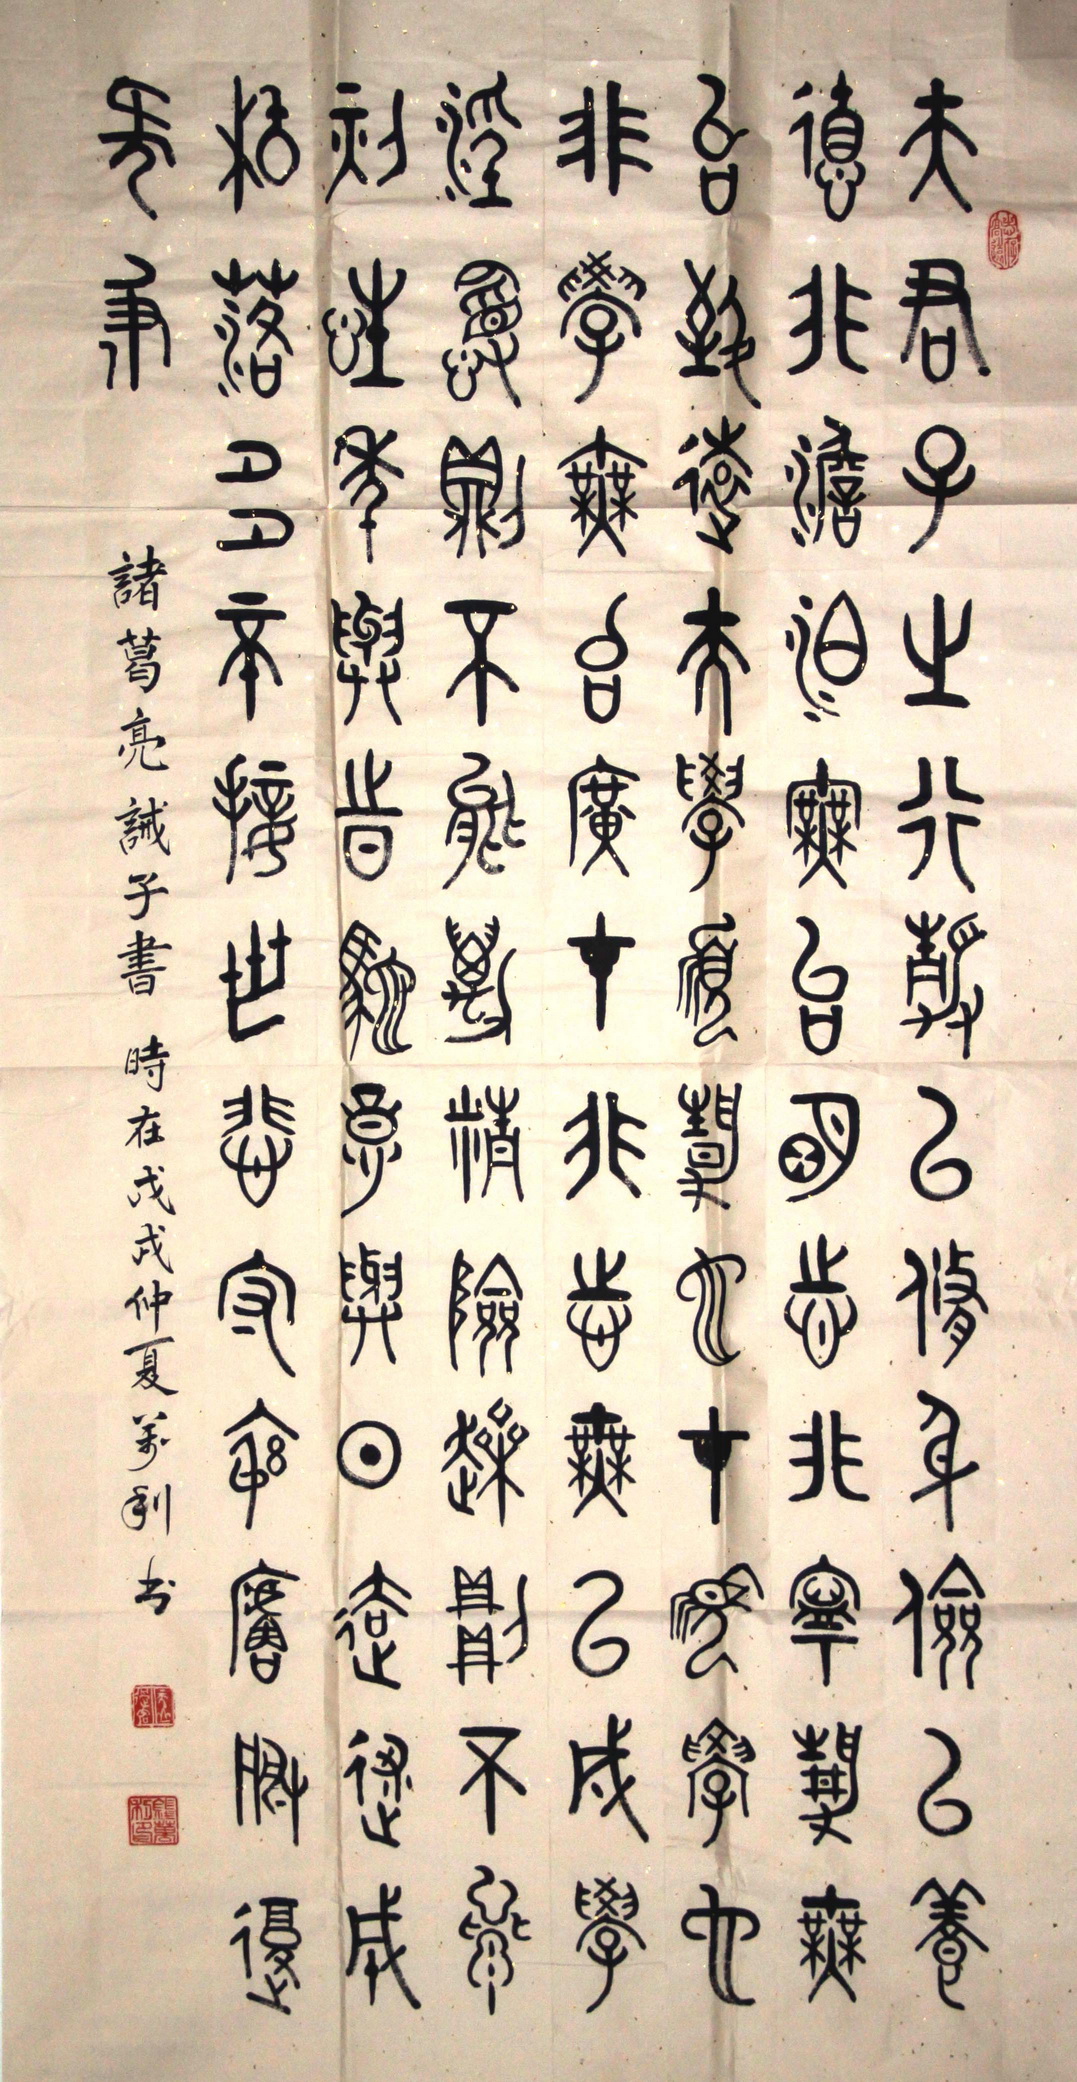 夫君子之行靜以修身儉以養
德非澹泊無以明志非寧靜無
以致遠夫學須靜也才須學也
非學無以廣才非志無以成學
淫慢則不能勵精險躁則不能
冶性年與時馳意與日去遂成
枯落多不接世悲守窮廬將復
何及
諸葛亮誡子書 時在戊戌仲夏萬利书